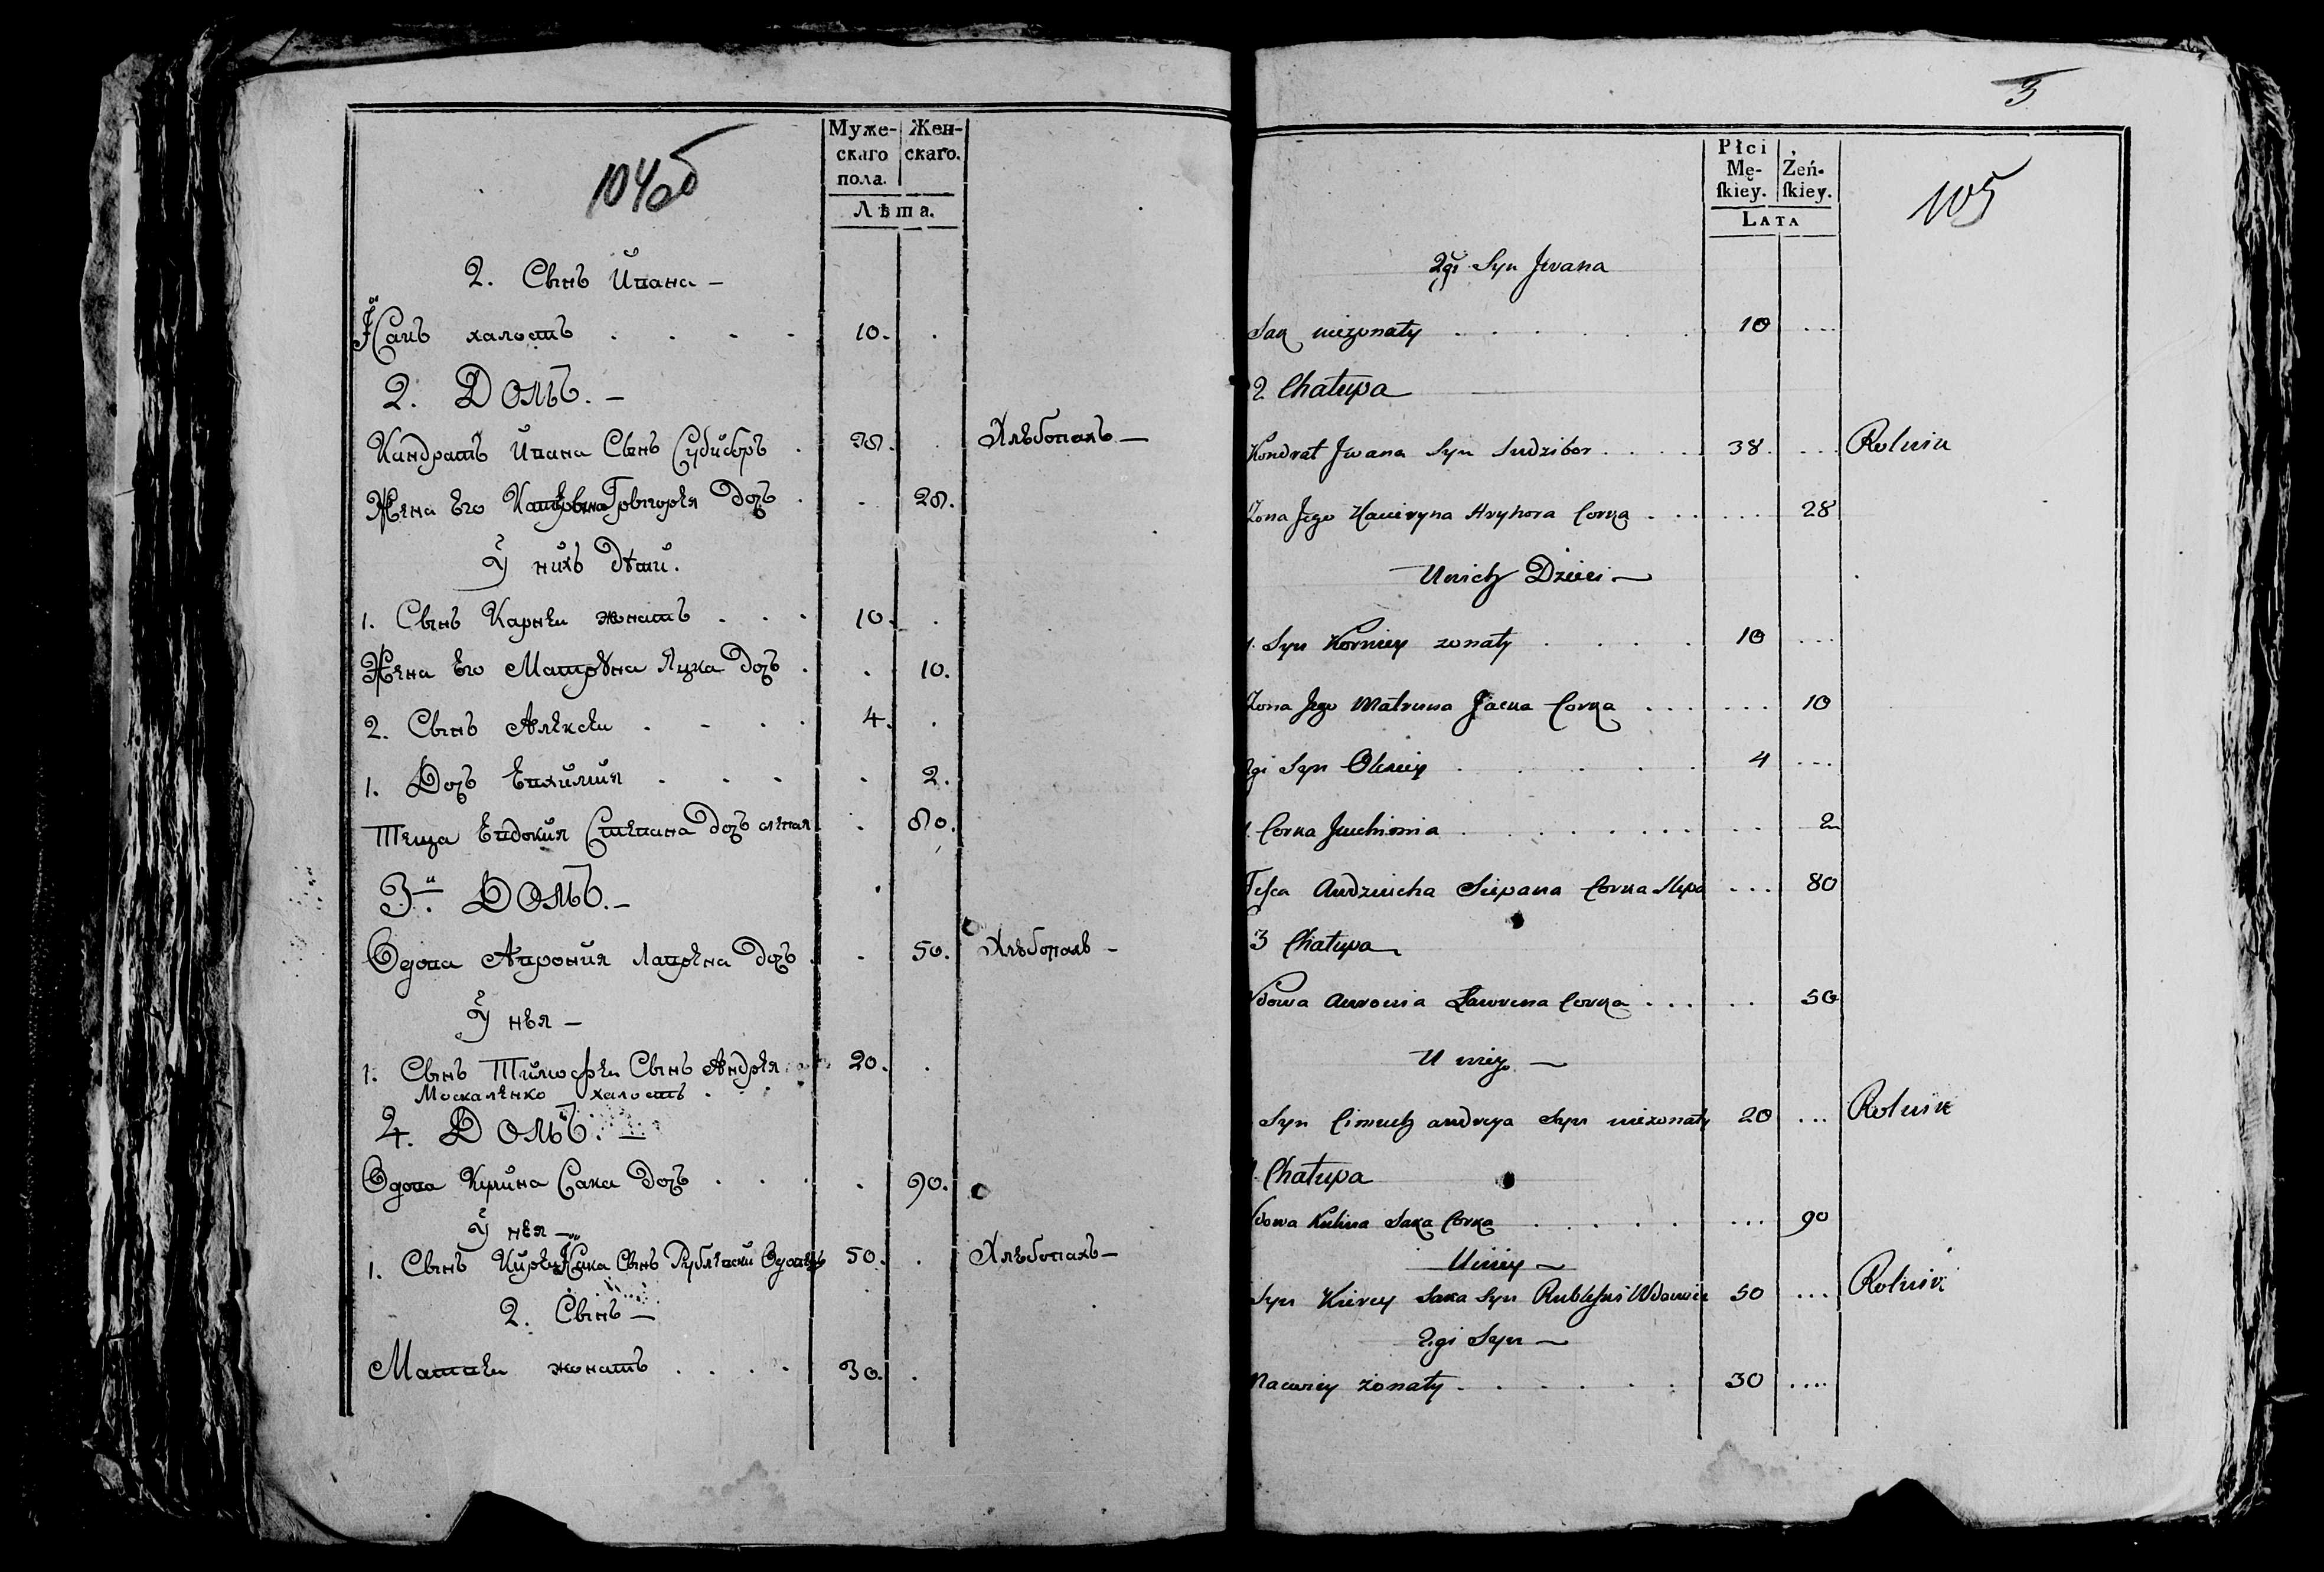 104об
Муже-скаго пола. Жен-скаго.
Лѣта.
2. Сынъ Ивана —
Сакъ халостъ . . . . 10. .
2. Домъ. —
Кандратъ Ивана Сынъ Судиборъ . 38. . Хлѣбопахъ —
Жена Его Катерына Грыгорея дочъ . . 28.
У нихъ дѣти.
1. Сынъ Карнеи жонатъ . . . 10. .
Жена Его Матруна Яцка дочъ . . 10.
2. Сынъ Алексеи . . . . 4. .
1. Дочъ Евхимия . . . . 2.
Теща Евдокия Степана дочъ слепая . 80.
3й. Домъ. —
Вдова Аврония Лаврена дочъ . . 50. Хлѣбопахъ —
У нея —
1. Сынъ Тимофеи Сынъ Андрея 20. .
Москаленко халостъ .
4. Домъ. —
Вдова Кулина Сака дочъ . . . . 90.
У нея —
1. Сынъ Киреи Сака Сынъ Рублевски Вдовецъ 50. . Хлѣбопахъ —
2. Сынъ —
Матвеи жонатъ . . . . 30. .
3
105
Płci Mę-ſkiey. Żeń-ſkiey.
LATA
2gi Syn Jwana
Sak niezonaty . . . . . 10 ...
2 Chałupa
Kondrat Jwana Syn Sudzibor . . . . 38. ... Rolnik
Zona Jego Kacieryna Hryhora Corka . . . ... 28
U nich Dzieci —
1. Syn Korniey zonaty . . . . 10 ...
Zona Jego Matruna Jacka Corka . . . ... 10
2gi Syn Olexiey . . . . . 4 ...
1. Corka Jwchimia . . . . . . . . 2
Teſca Audziucha Sciepana Corka Slepa ... 80
3 Chałupa
Wdowa Awronia Ławrena Corka . . . . . 50
U niey —
Syn Cimuch Andreya Syn niezonaty 20 ... Rolnik
4. Chałupa
Wdowa Kulina Saka Corka . . . . . ... 90
U niey —
Syn Kirey Saka Syn Rublewski Wdowiec 50 ... Rolnik
2gi Syn —
Maciwiey żonaty . . . . . . 30 ....